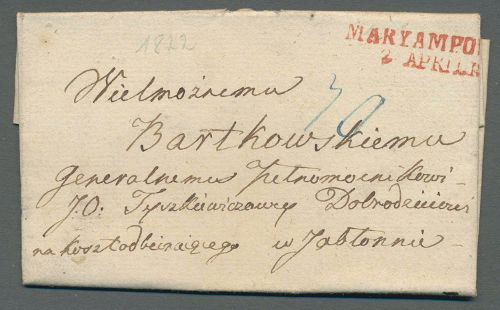 1822
MARYAMPO
2 APRILR
Wielmożnemu
30
Bartkowskiemu
Generalnemu Pełnomocnikowi
J.O. Tyszkiewiczowey Dobrodzieiki
na koszt odbieraiącego w Jabłonnie